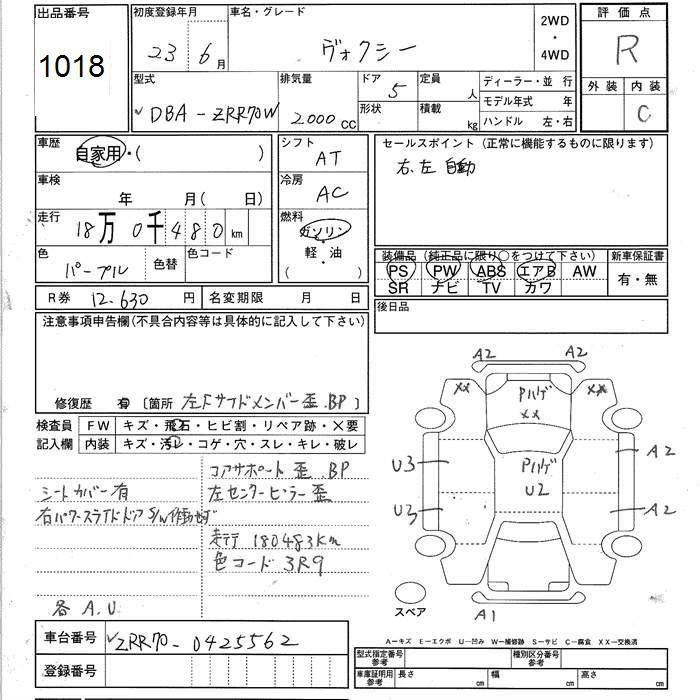 出品番号
1018
初度登録年月
23 6月
車名・グレード
ヴォクシー
2WD
・
4WD
評価点
R
外装 内装
C
型式
DBA-ZRR70W
排気量
2000cc
ドア 5
形状
定員 人
積載 kg
ディーラー・並行
モデル年式 年
ハンドル 左・右
車歴
自家用・( )
シフト
AT
車検
年 月( 日)
冷房
AC
走行
18万0千480km
燃料
ガソリン
・
軽・油
( )
色
パープル
色替
色コード
セールスポイント(正常に機能するものに限ります)
右、左 自動
装備品(純正品に限り○をつけて下さい)
PS PW ABS エアB AW
SR ナビ TV カワ
新車保証書
有・無
R券 12.630円
名変期限 月 日
後日品
注意事項申告欄(不具合内容等は具体的に記入して下さい)
修復歴 有 〔箇所 左Fサイドメンバー歪.BP〕
検査員
記入欄
FW キズ・飛石・ヒビ割・リペア跡・×要
内装 キズ・汚レ・コゲ・穴・スレ・キレ・破レ
コアサポート歪.BP
シートカバー有
左センターピラー歪
右パワースライドドア
走行 180483Km
色コード 3R9
各 A.U
A2 A2
XX XX
Pハゲ
XX
Pハゲ
U2
U3
U3
A2
A2
スペア
A1
A…キズ E…エクボ U…凹み W…補修跡 S…サビ C…腐食 XX…交換済
車台番号
ZRR70-0425562
登録番号
型式指定番号
参考
種別区分番号
参考
車庫証明用
参考
長さ cm
幅 cm
高さ cm